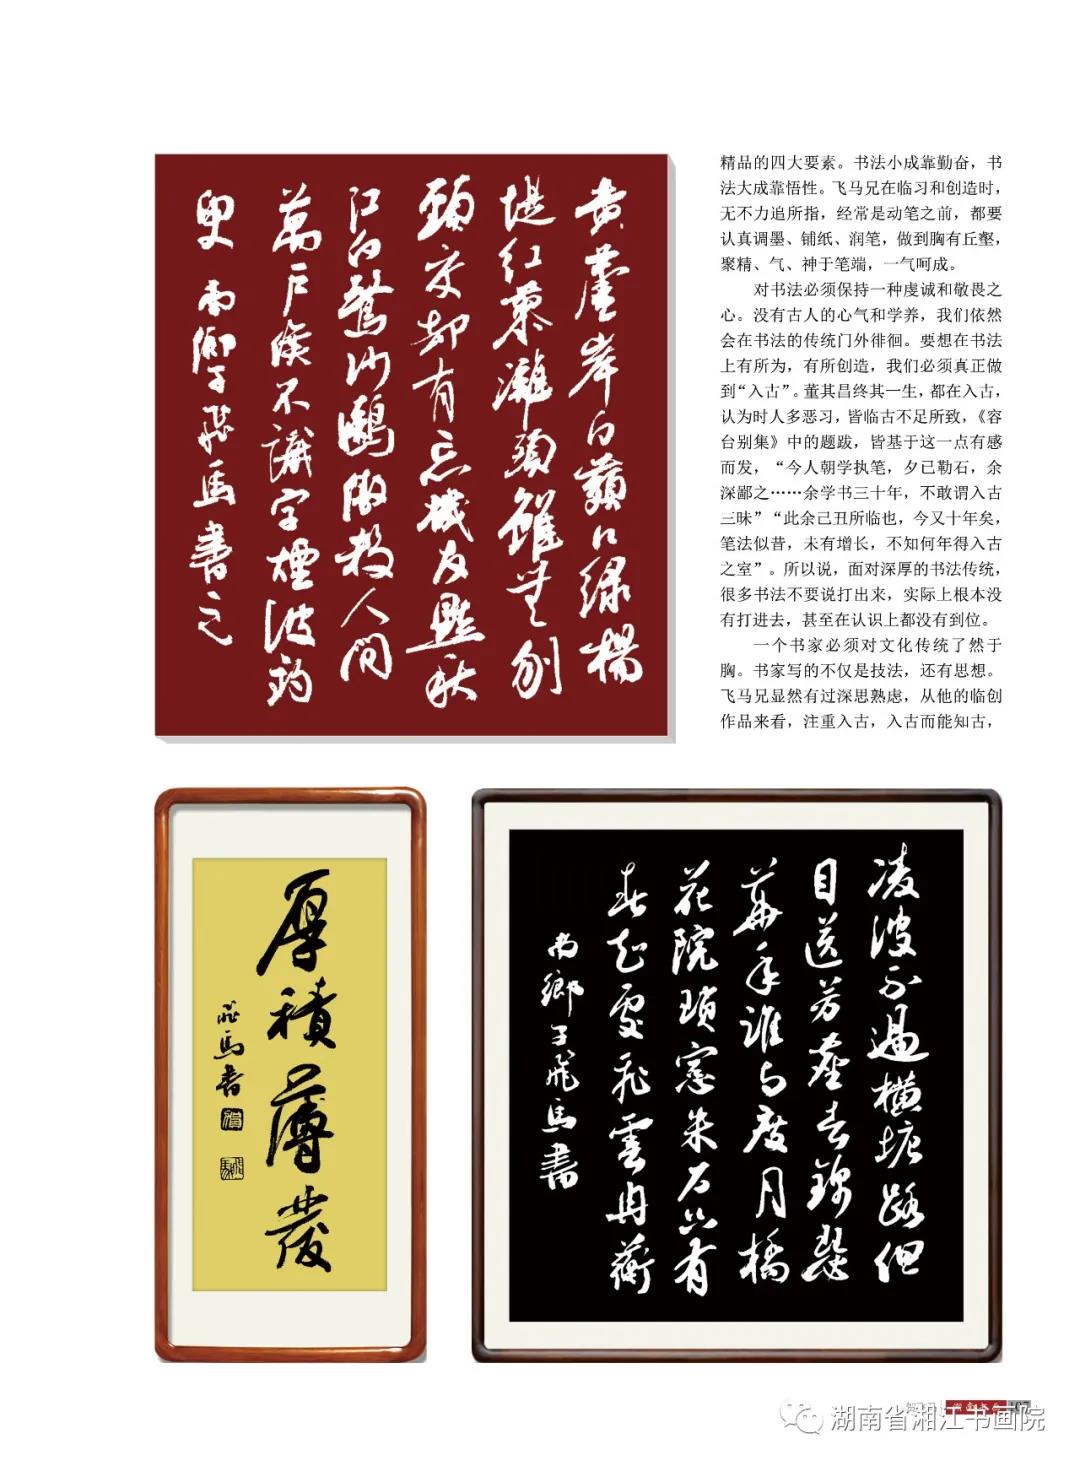 黄蘆岸白蘋口绿楊
堤红蓼灘頭雖無刎
頸交却有忘機友點秋
江白鷺沙鷗傲殺人間
萬戶侯不識字煙波釣
叟 南鄉子飛馬書之
精品的四大要素。书法小成靠勤奋，书
法大成靠悟性。飞马兄在临习和创造时，
无不力追所指，经常是动笔之前，都要
认真调墨、铺纸、润笔，做到胸有丘壑，
聚精、气、神于笔端，一气呵成。
对书法必须保持一种虔诚和敬畏之
心。没有古人的心气和学养，我们依然
会在书法的传统门外徘徊。要想在书法
上有所为，有所创造，我们必须真正做
到“入古”。董其昌终其一生，都在入古，
认为时人多恶习，皆临古不足所致，《容
台别集》中的题跋，皆基于这一点有感
而发，“今人朝学执笔，夕已勒石，余
深鄙之……余学书三十年，不敢谓入古
三昧”“此余己丑所临也，今又十年矣，
笔法似昔，未有增长，不知何年得入古
之室”。所以说，面对深厚的书法传统，
很多书法不要说打出来，实际上根本没
有打进去，甚至在认识上都没有到位。
一个书家必须对文化传统了然于
胸。书家写的不仅是技法，还有思想。
飞马兄显然有过深思熟虑，从他的临创
作品来看，注重入古，入古而能知古，
厚積薄發
飛馬書
凌波不過横塘路但
目送芳塵去錦瑟
華年誰与度月橋
花院瑣窓朱户只有
春知處飛雲冉蘅
南鄉子飛馬書
107
湖南省湘江书画院